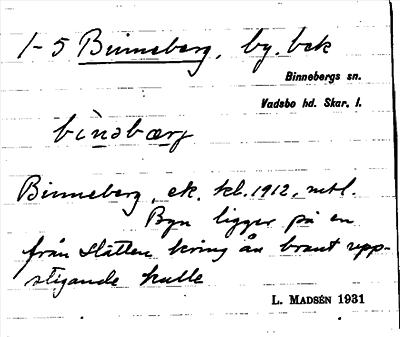 1-5 Binneberg, by, bck
Binnebergs sn.
Vadsbo hd. Skar. l.
bìnəbærj
Binneberg, ek. kl. 1912, mtl.
Byn ligger på en
från slätten kring ån brant upp-
stigande kulle
L. MADSÉN 1931